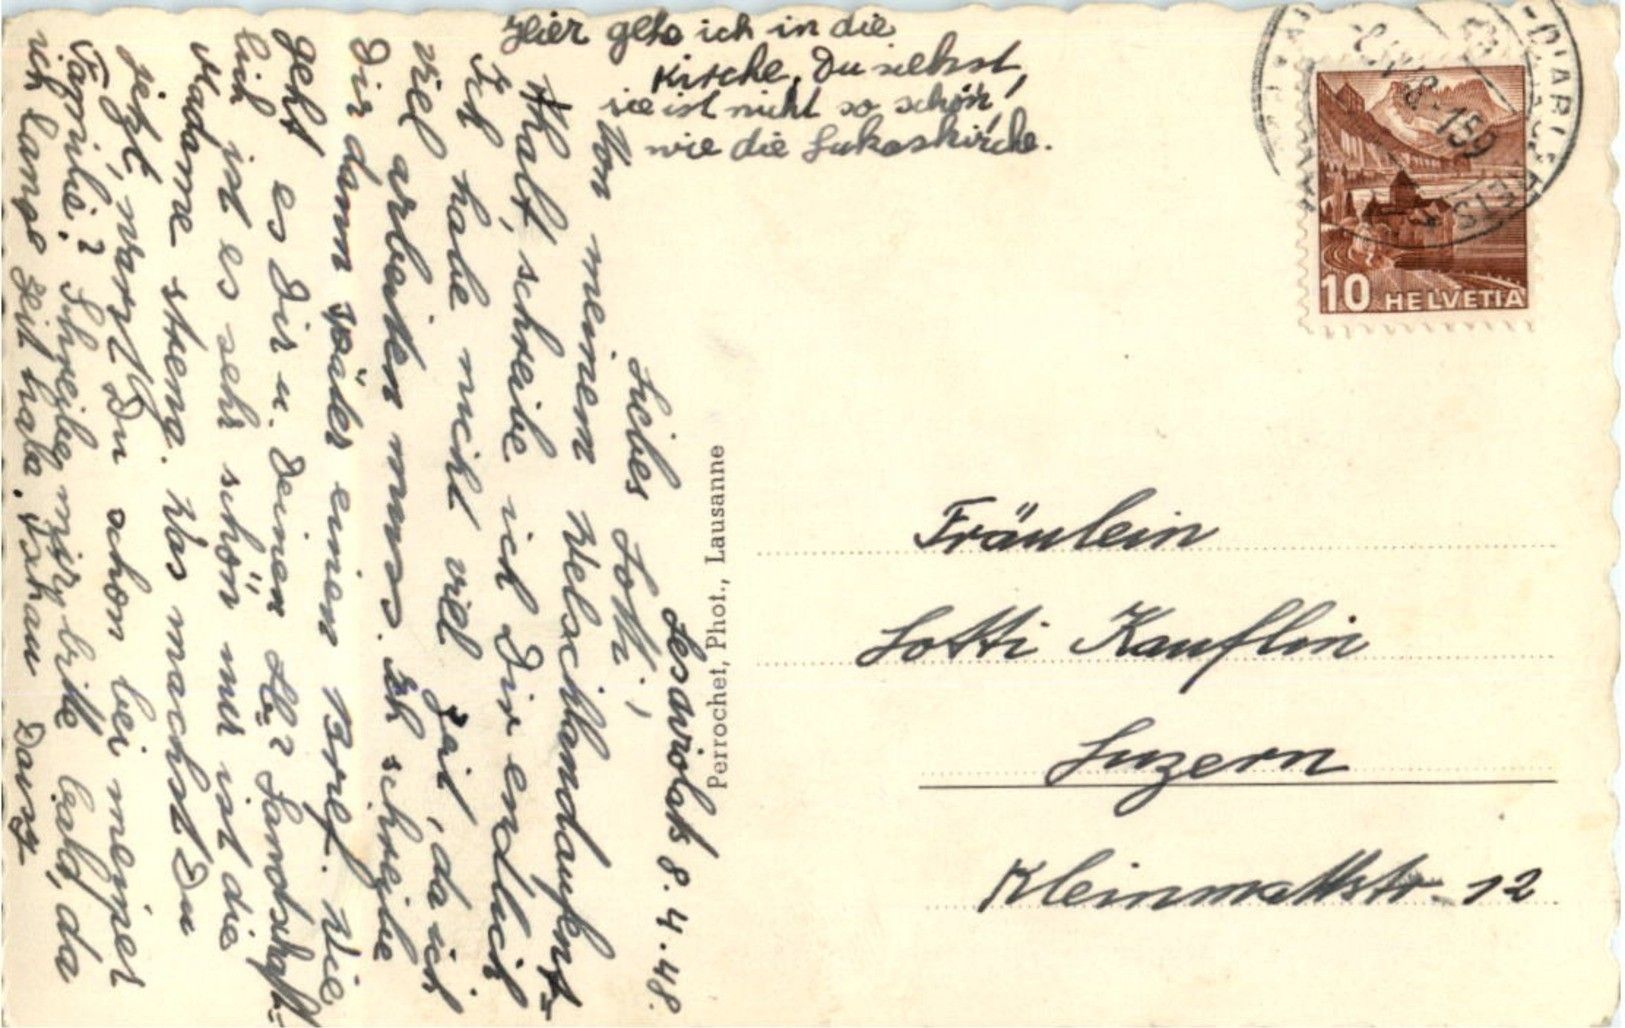 Hier gehe ich in die
Kirche, Du siehst,
sie ist nicht so schön,
wie die Lukaskirche.
8.4.48.
Liebes Lotti,
Von meinem Welschlandaufent-
halt, schreibe ich Dir endlich
Ich habe nicht viel Zeit, da ich
viel arbeiten muss. Ich schreibe
Dir dann später einen Brief. Wie
geht es Dir u. Deinen Lb? Landschaft-
lich ist es sehr schön nur ist die
Madame streng. Was machst Du
jetzt, warst Du schon bei meiner
Familie? Schreibe mir bitte bald, da
ich lange Zeit habe. Tschau
Perrochet, Phot., Lausanne
10 HELVETIA
Fräulein
Lotti Kauflin
Luzern
Kleinmattstr. 12